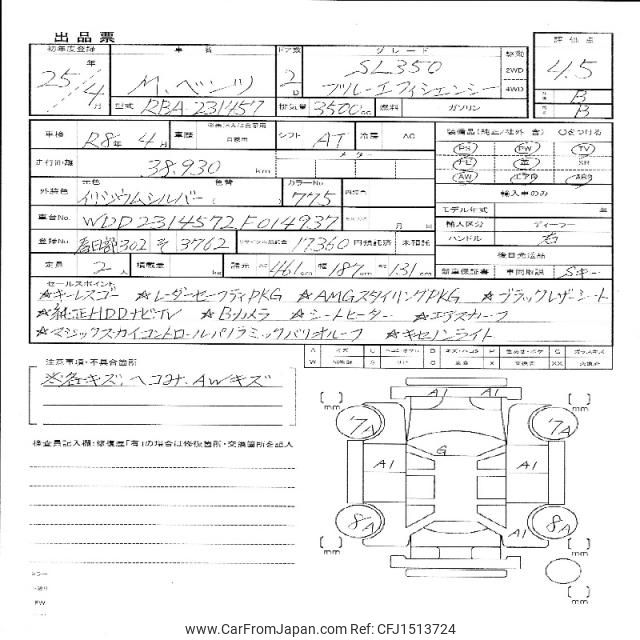 出品票
初年度登録 車名 ドア数 グレード 駆動 評価点
25年 4月 M.ベンツ 2D SL350 ブルーエフィシェンシー 2WD 4WD 4.5
型式 RBA-231457 排気量 3500cc 燃料 ガソリン B B
車検 R8年 4月 車歴 自家用 シフト AT 冷房 AC 装備品(純正/社外 含) ○をつける
走行距離 38,930 km メーター PS PW TV
外装色 元色 イリジウムシルバー 色替 ( ) カラーNo 775 内装色 AW エアB 輸入車のみ
車台No. WDD2314572F014937 月 モデル年式 年
登録No. 春日部 302 そ 3762 リサイクル 17360 円預託済 未預託 輸入区分 ディーラー
ハンドル 右
定員 2人 積載量 kg 諸元 461cm 幅 187cm 131cm 後日発送品
新車保証書 車両取説 Sキー
セールスポイント
☆キーレスゴー ☆レーダーセーフティPKG ☆AMGスタイリングPKG ☆ブラックレザーシート
☆純正HDDナビTV ☆Bカメラ ☆シートヒーター ☆エアスカーフ
☆マジックスカイコントロールパノラミックバリオルーフ ☆キセノンライト
注意事項・不具合箇所
※各キズ、ヘコみ、AWキズ
検査員記入欄:修復歴「有」の場合は修復箇所・交換箇所を記入
[ ] mm [ ] mm
A1 A1
7A 7A
G
A1 A1
8A 8A
A1
[ ] mm [ ] mm
[ ] mm
CarFromJapan.com CFJ1513724